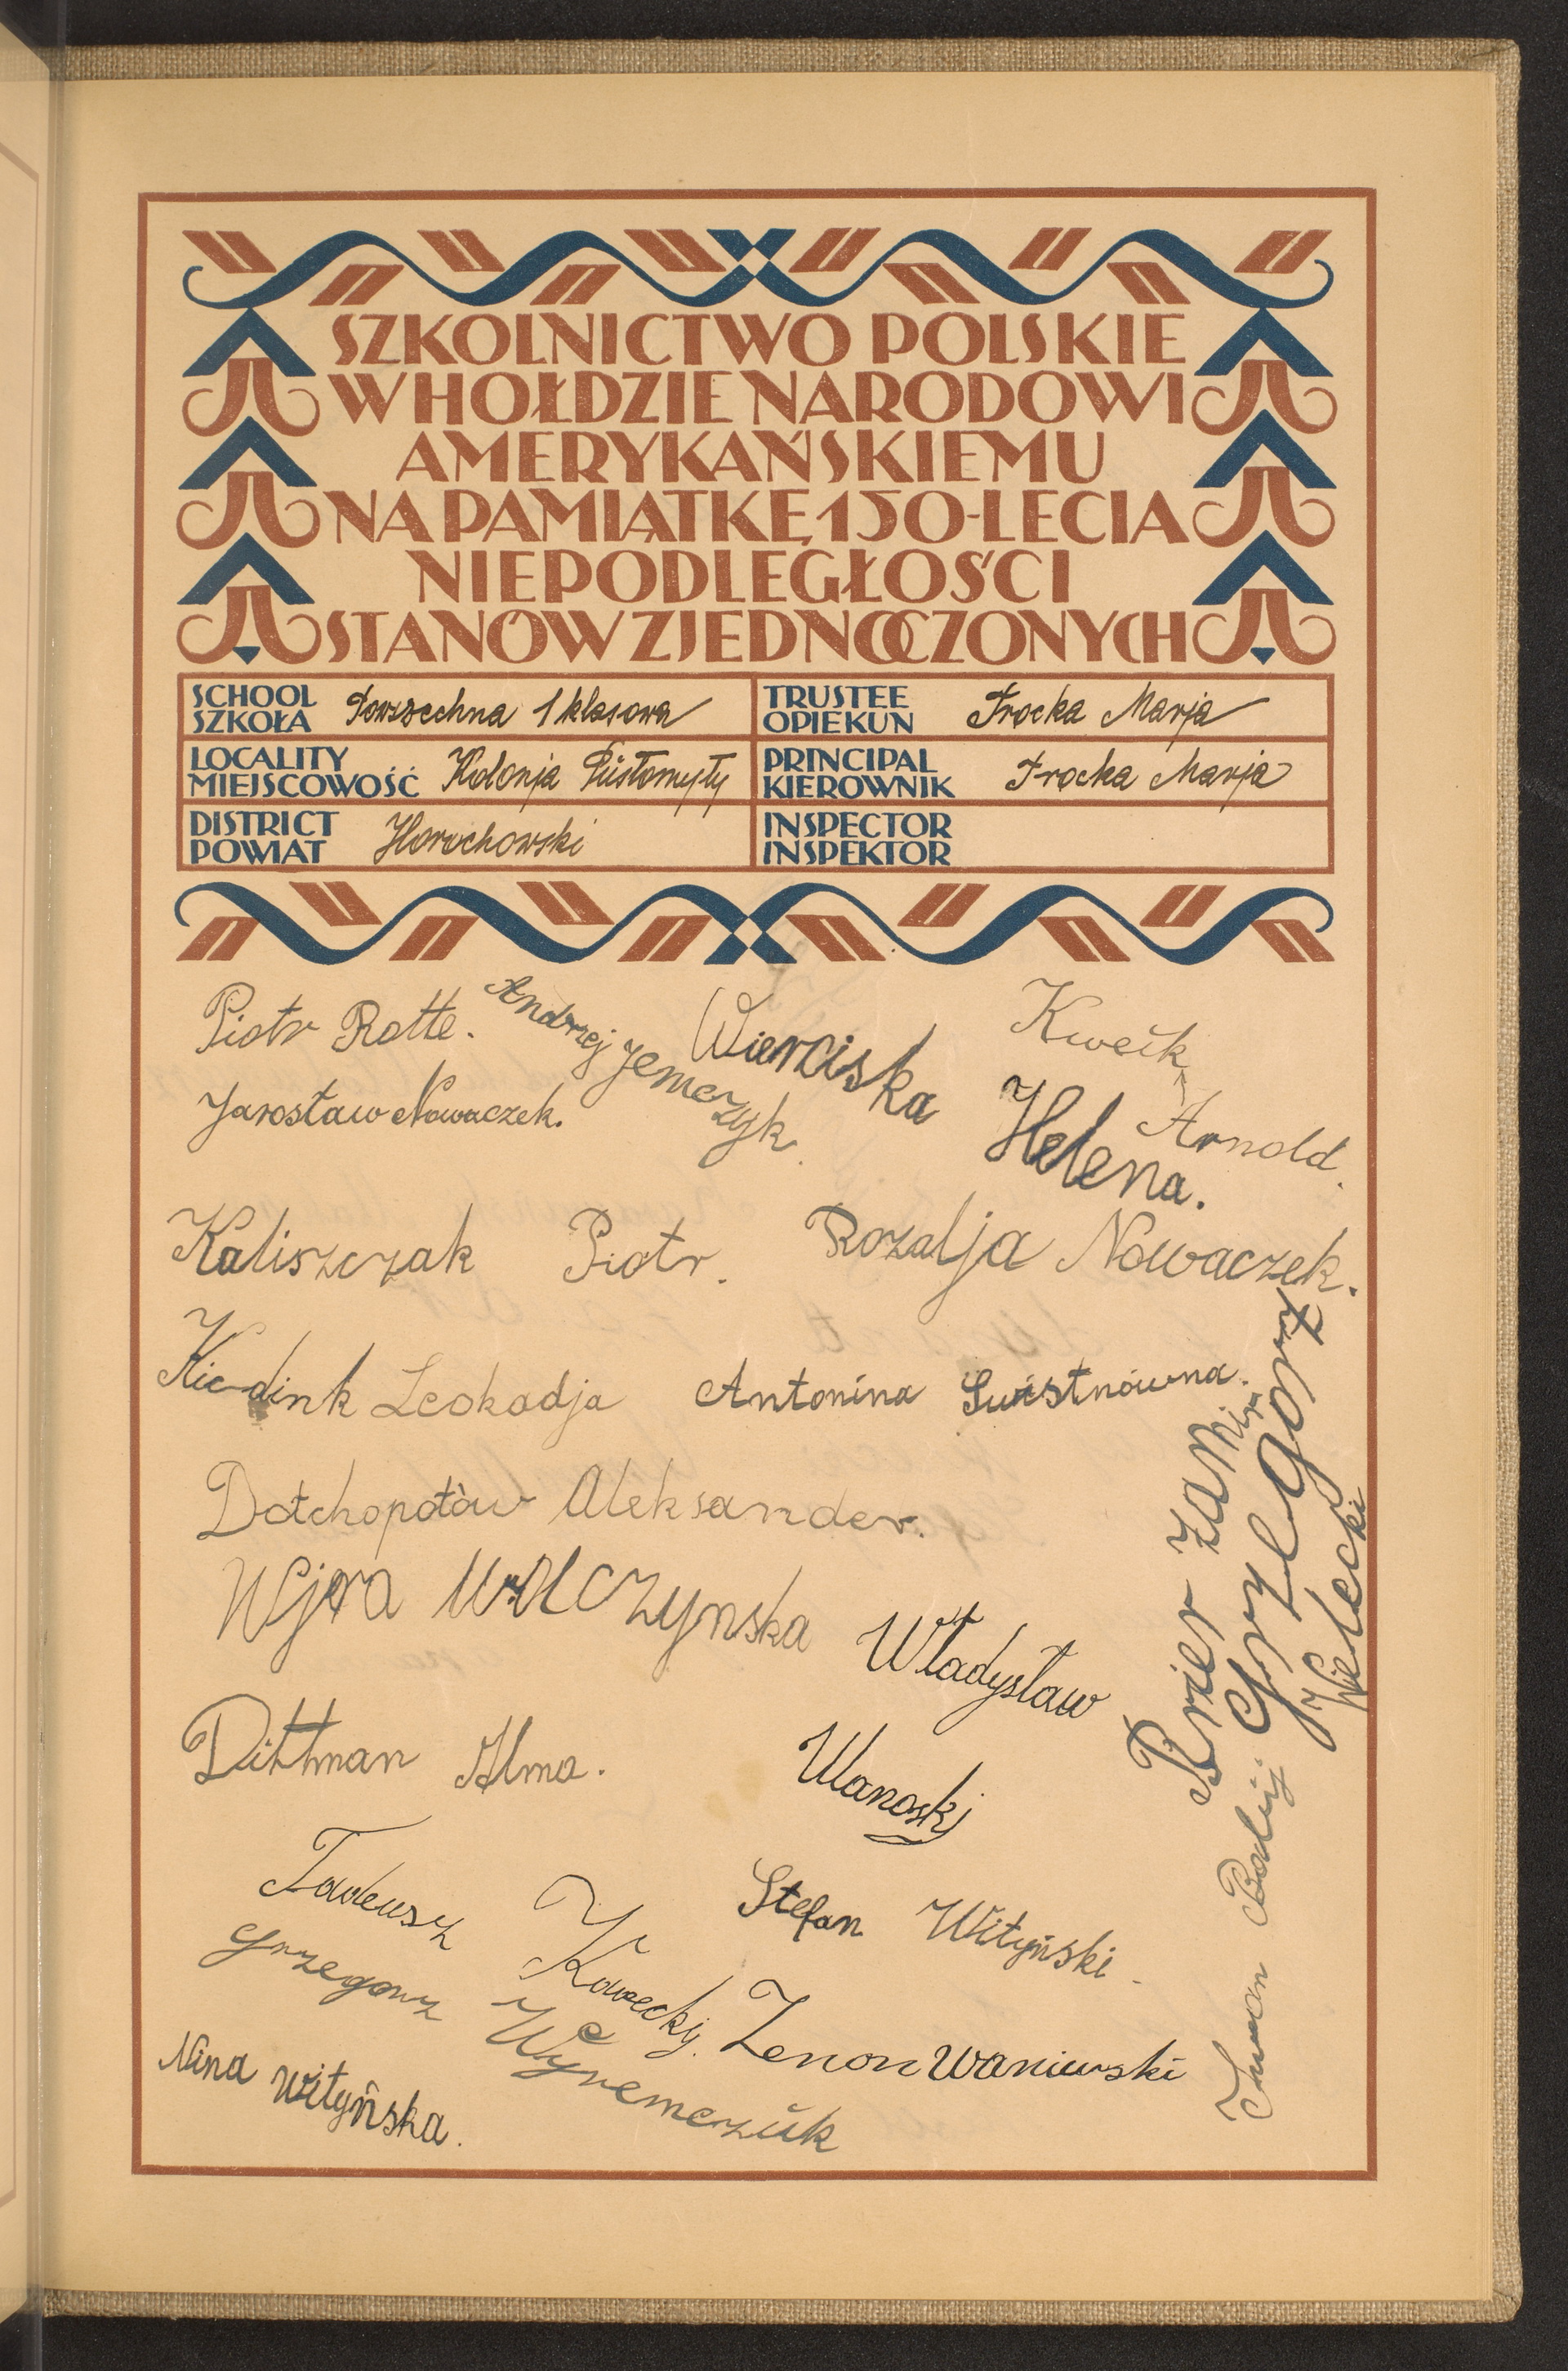 SZKOLNICTWO POLSKIE
W HOŁDZIE NARODOWI
AMERYKAŃSKIEMU
NA PAMIĄTKĘ 150-LECIA
NIEPODLEGŁOŚCI
STANÓW ZJEDNOCZONYCH
SCHOOL
SZKOŁA Powszechna 1 klasowa
TRUSTEE
OPIEKUN Trocka Marja
LOCALITY
MIEJSCOWOŚĆ Kolonja Pustomyty
PRINCIPAL
KIEROWNIK Trocka Marja
DISTRICT
POWIAT Horochowski
INSPECTOR
INSPEKTOR
Piotr Rotte.
Andrzej Jemczyk.
Wierciska Helena.
Kweik Arnold.
Jarosław Nowaczek.
Kaliszczak Piotr.
Rozalja Nowaczek.
Leokadja
Antonina
Aleksander.
Władysław
Ulanoskj
Dittman Alma.
Tadeusz Kawecky.
Stefan Wityński.
Grzegorz Wyremczuk
Zenon Waniewski
Nina Wityńska.
Grzegorz
Wielecki
Iwan